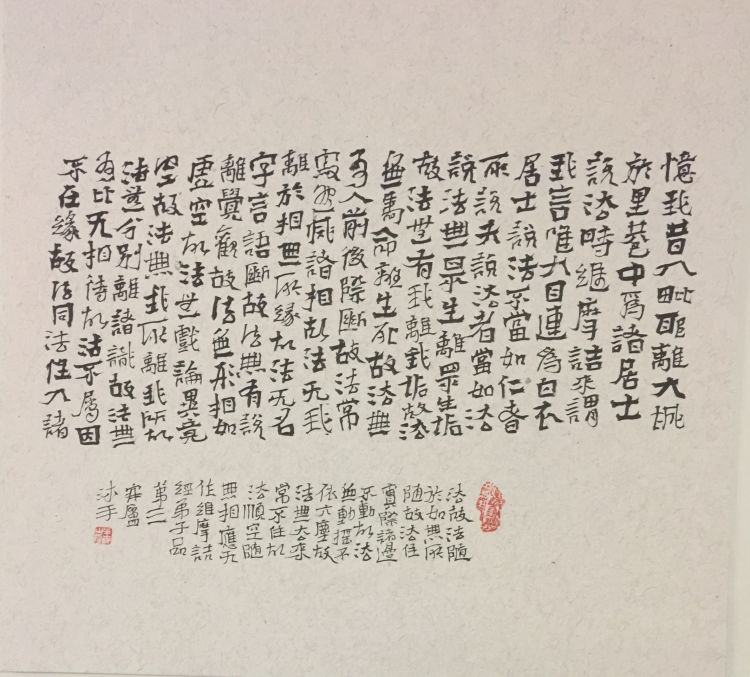 憶我昔入毗耶離大城
於里巷中爲諸居士
說法時維摩詰來謂
我言唯大目連爲白衣
居士說法不當如仁者
所說夫說法者當如法
說法無眾生離眾生垢
故法無有我離我垢故法
無壽命離生死故法無
有人前後際斷故法常
寂然滅諸相故法无我
離於相無所緣故法无名
字言語斷故法無有說
離覺觀故法無形相如
虛空故法無戲論畢竟
空故法無我所離我所故
法無分別離諸識故法無
有比无相待故法不屬因
不在緣故法同法性入諸
法故法隨
於如無所
隨故法住
實際諸邊
不動故法
無動搖不
依六塵故
法無去來
常不住故
法順空隨
無相應无
作維摩詰
經弟子品
第三
廬
沐手